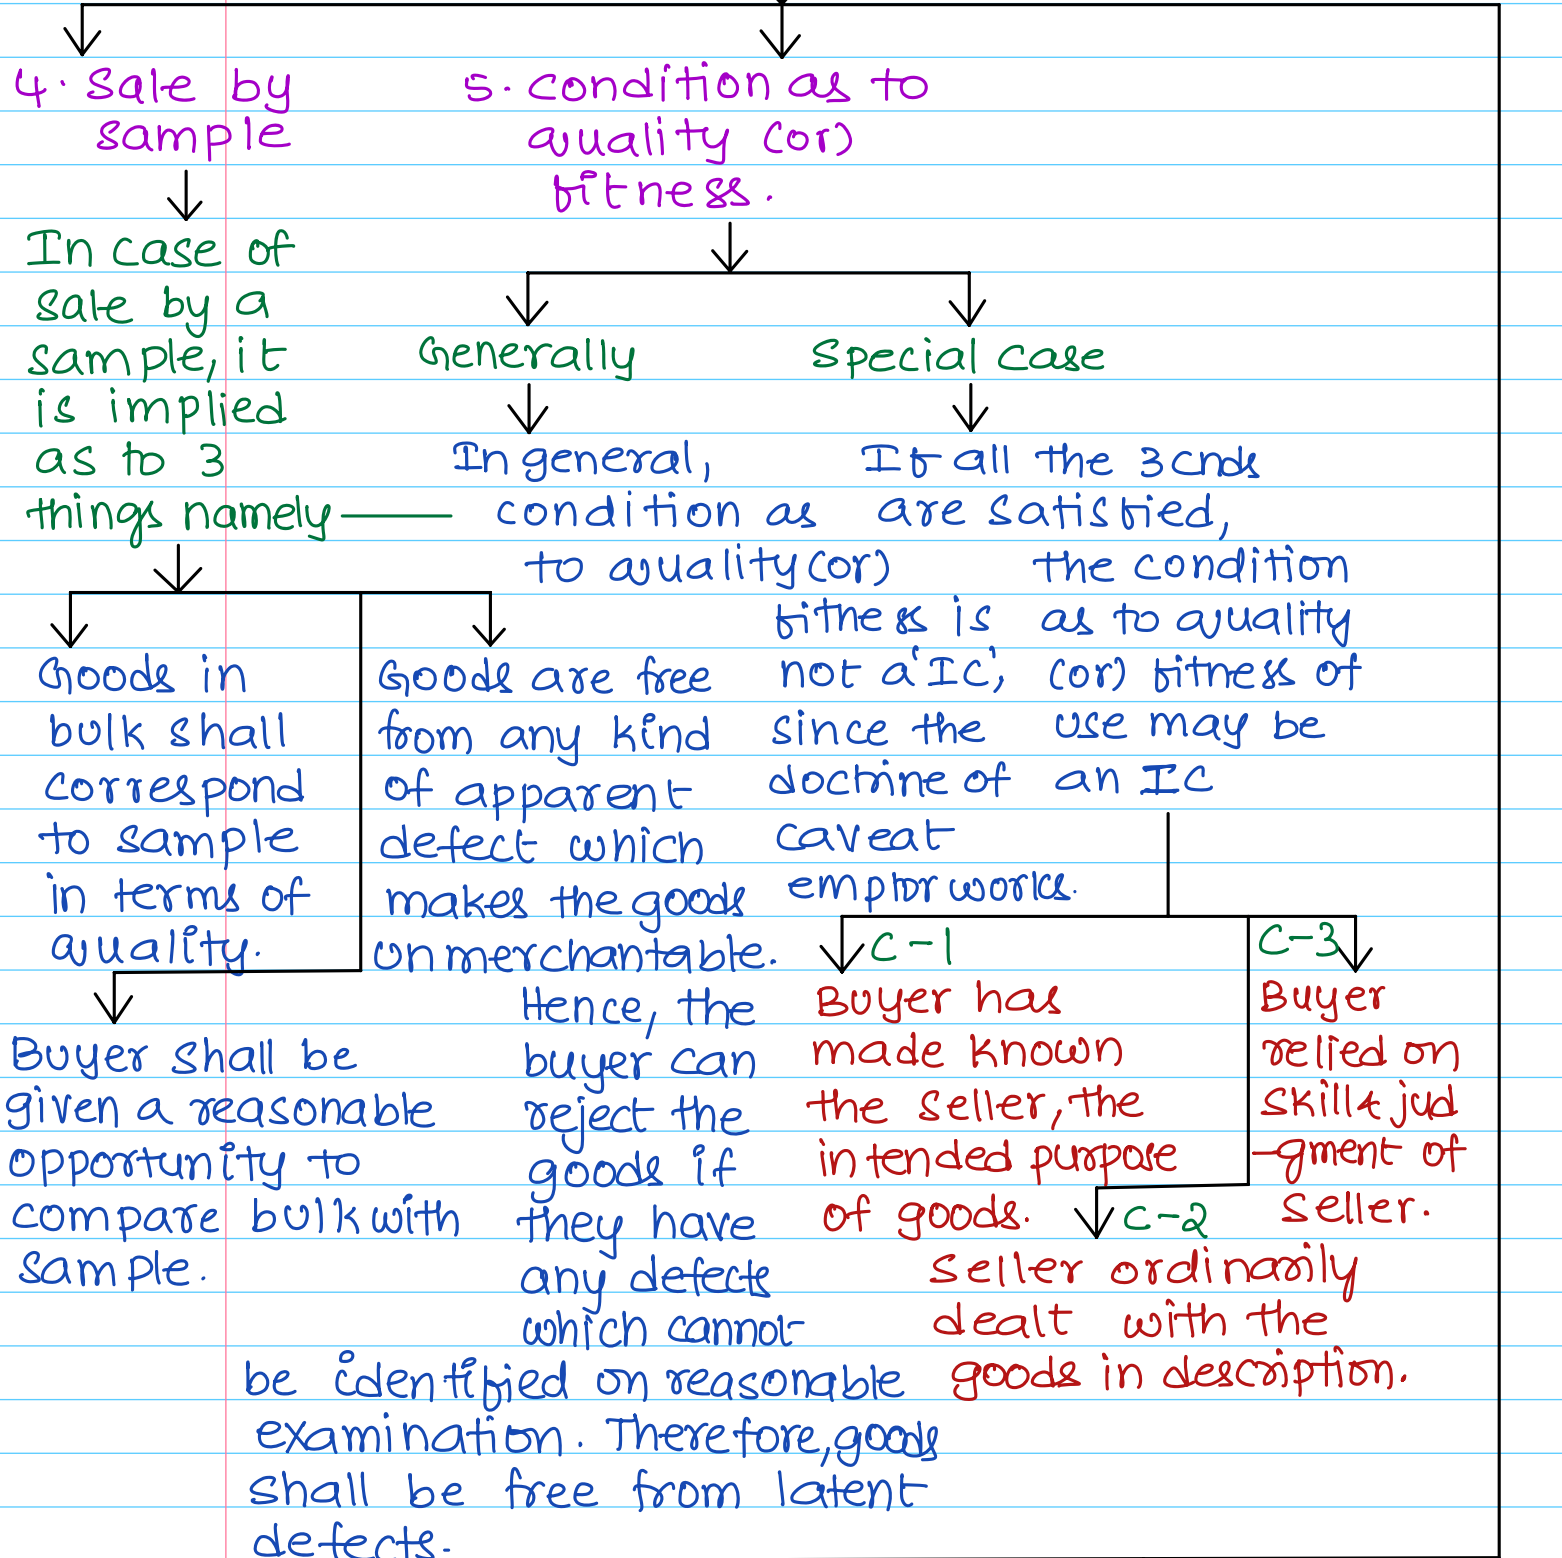 4. Sale by
sample
In case of
sale by a
sample, it
is implied
as to 3
things namely
Goods in
bulk shall
correspond
to sample
in terms of
quality.
Buyer shall be
given a reasonable
opportunity to
compare bulk with
sample.
Goods are free
from any kind
of apparent
defect which
makes the goods
unmerchantable.
Hence, the
buyer can
reject the
goods if
they have
any defects
which cannot
be identified on reasonable
examination. Therefore, goods
shall be free from latent
defects.
5. condition as to
quality (or)
fitness.
Generally
In general,
condition as
to quality (or)
fitness is
not a 'IC',
since the
doctrine of
caveat
emptor works.
Special case
If all the 3 cnds
are satisfied,
the condition
as to quality
(or) fitness of
use may be
an IC
C-1
Buyer has
made known
the seller, the
intended purpose
of goods.
C-2
Seller ordinarily
dealt with the
goods in description.
C-3
Buyer
relied on
skill & jud
-gment of
seller.